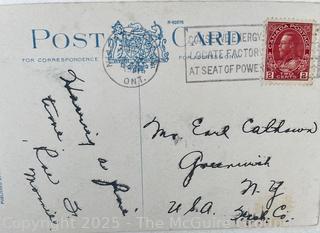 R-60876
POST CARD
FOR CORRESPONDENCE
ONT.
ENERGY
LOCATE FACTOR
AT SEAT OF POWER
CANADA POSTAGE
2 2
Having a fine
time.
Mr. Earl Calhoun
Greenwich
N. Y
U.S.A. Wash. Co.
Copyright 2025 - The McGuire Group